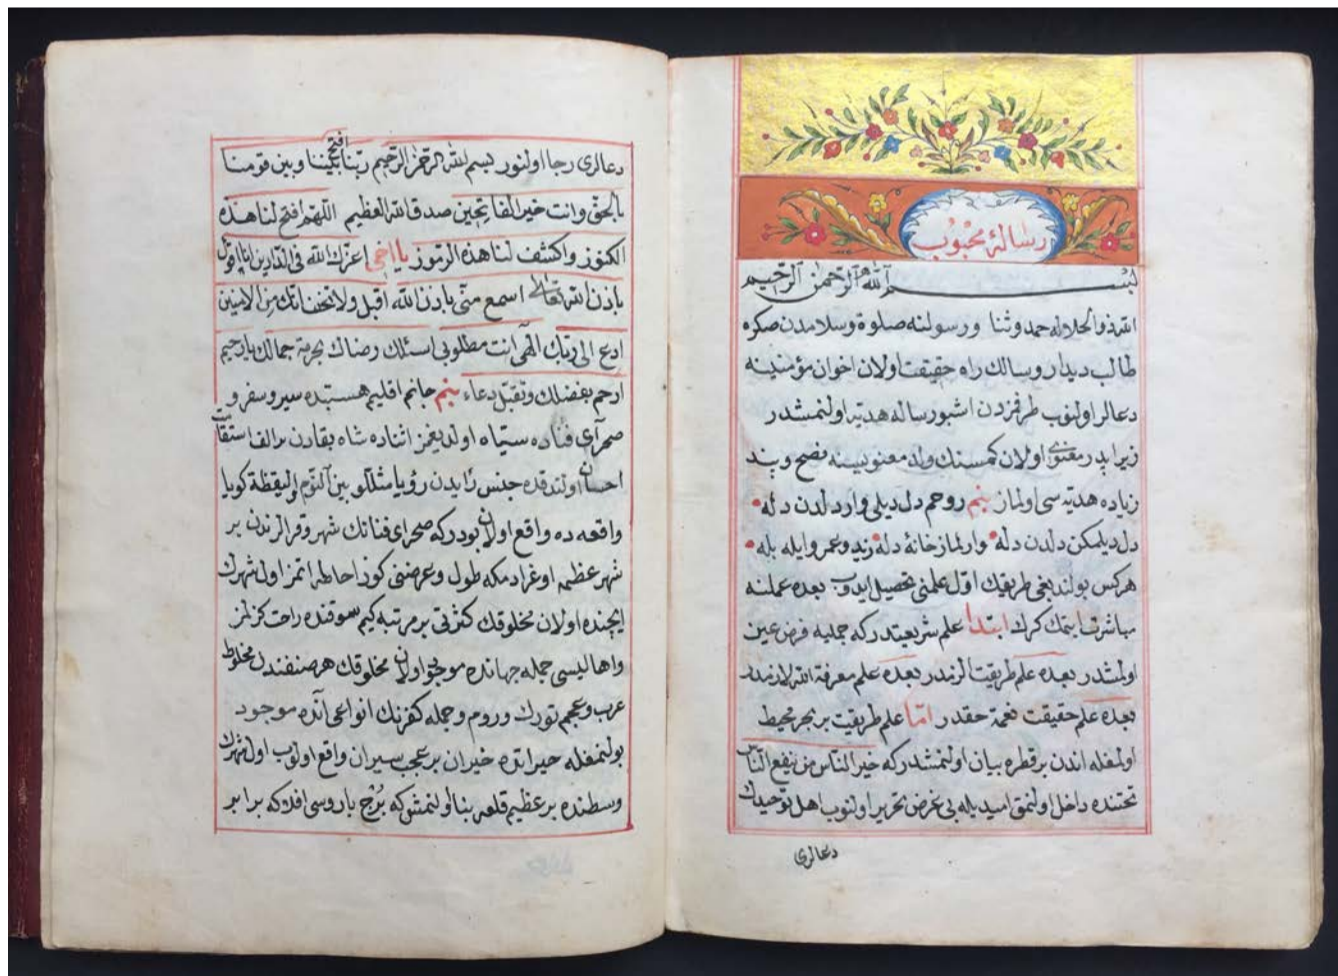 رسالهٔ محبوب
بسم الله الرحمن الرحيم
الله ذو الجلاله حمد وثنا ورسولنه صلوة وسلامدن صكره
طالب ديدار وسالك راه حقيقت اولان اخوان مؤمنينه
دعالر اولنوب طرفمزدن اشبو رساله هديه اولنمشدر
زيرا پدر معنوى اولان كمسنك ولد معنويسنه نصح وپند
زياده هديه سى اولماز بنم روحم دل ديلى وارد لدن دله
دل ديلمكن دلدن دله وارلماز خانهٔ دله زيد وعمرو ايله بله
هركس بولنديغى طريقك اول علمنى تحصيل ايدوب بعده عملنه
مباشرت ايتمك كرك ابتدا علم شريعتدر كه جمليه فرض عين
اولمشدر بعده علم طريقت الزمدر بعده علم معرفة الله لازمدر
بعده علم حقيقت نعمة حقدر اما علم طريقت بر بحر محيط
اولمغله اندن بر قطره بيان اولنمشدر كه خير الناس من ينفع الناس
تحتنده داخل اولنمق اميديله بى غرض تحرير اولنوب اهل توحيدك
دعالرى
دعالرى رجا اولنور بسم الله الرحمن الرحيم ربنا افتح بيننا وبين قومنا
بالحق وانت خير الفاتحين صدق الله العظيم اللهم افتح لنا هذه
الكنوز واكشف لنا هذه الرموز يا اخى اعزك الله فى الدارين انا اقول
باذن الله تعالى اسمع منى باذن الله اقبل ولا تخف انك من الامنين
ادع الى ربك الهى انت مطلوبى اسئلك رضاك بحرمة جمالك يا رحيم
ارحم بفضلك وتقبل دعاء بنم جانم اقليم هستيده سير وسفر و
صحراى فناده سياه اولديغمز اثناده شاه بقادن بر الفا ستقامت
احسان اولندقده جنس رأيدن رؤيا مثللو بين النوم واليقظة كويا
واقعه ده واقع اولان بودر كه صحراى فنانك شهر وقرالرندن بر
شهر عظيمه اوغرادمكه طول وعرضنى كوز احاطه ايتمز اول شهرك
ايچنده اولان مخلوقك كثرتى بر مرتبه كيم سوقنده راحت كزلمز
واهاليسى جمله جهانده موجود اولان مخلوقك هر صنفندن مخلوط
عرب وعجم تورك وروم وجمله كفرنك انواعى آنده موجود
بولنمغله حيراتده خيران بر عجب سيران واقع اولوب اول شهرك
وسطنده بر عظيم قلعه بنا اولنمش كه برج باروسى افلاكه برابر